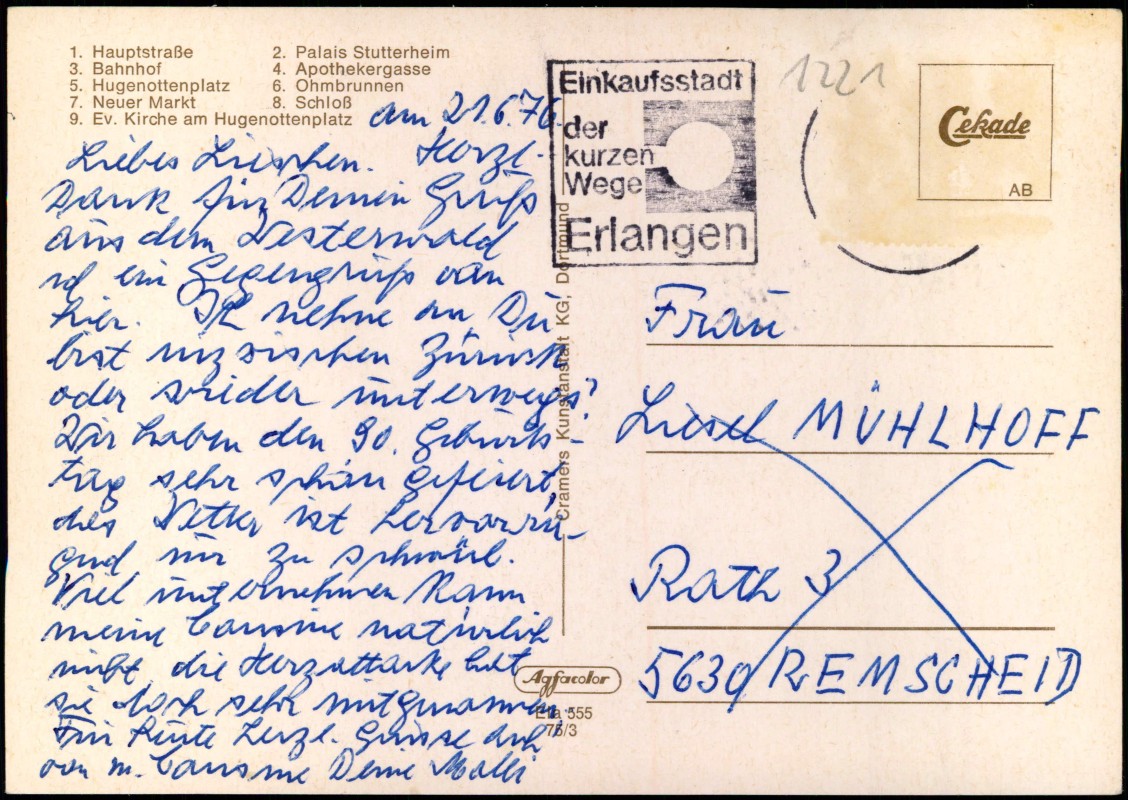 1. Hauptstraße 2. Palais Stutterheim
3. Bahnhof 4. Apothekergasse
5. Hugenottenplatz 6. Ohmbrunnen
7. Neuer Markt 8. Schloß
9. Ev. Kirche am Hugenottenplatz
am 21.6.76.
Liebes Lieschen. Herzl.
Dank für Deinen Gruß
aus dem Westerwald
ud ein Gegengruß von
hier. Ich nehme an Du
bist inzwischen zurück
oder wieder unterwegs?
Wir haben den 90. Geburts-
tag sehr schön gefeiert,
das Wetter ist hervorra-
gend nur zu schwül.
Viel unternehmen kann
meine Cousine natürlich
nicht, die Herzattacke hat
sie doch sehr mitgenommen.
Für heute herzl. Grüsse auch
von m. Cousine Deine
Einkaufsstadt
der
kurzen
Wege
Erlangen
1221
Cekade
AB
Cramers Kunstanstalt KG, Dortmund
Frau
Liesel MÜHLHOFF
Rath 3
5630 REMSCHEID
Agfacolor
Era 555
76/3